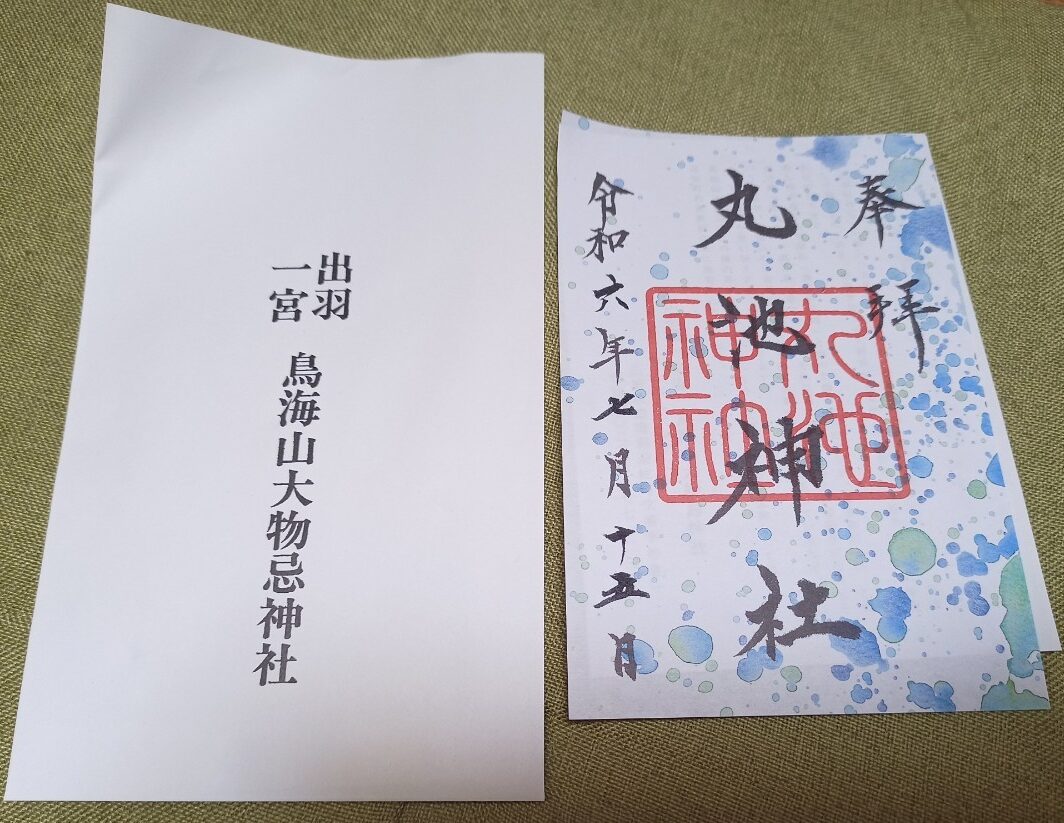 出羽
一宮
鳥海山大物忌神社
奉拝
丸池神社
丸池
神社
令和六年七月十五月